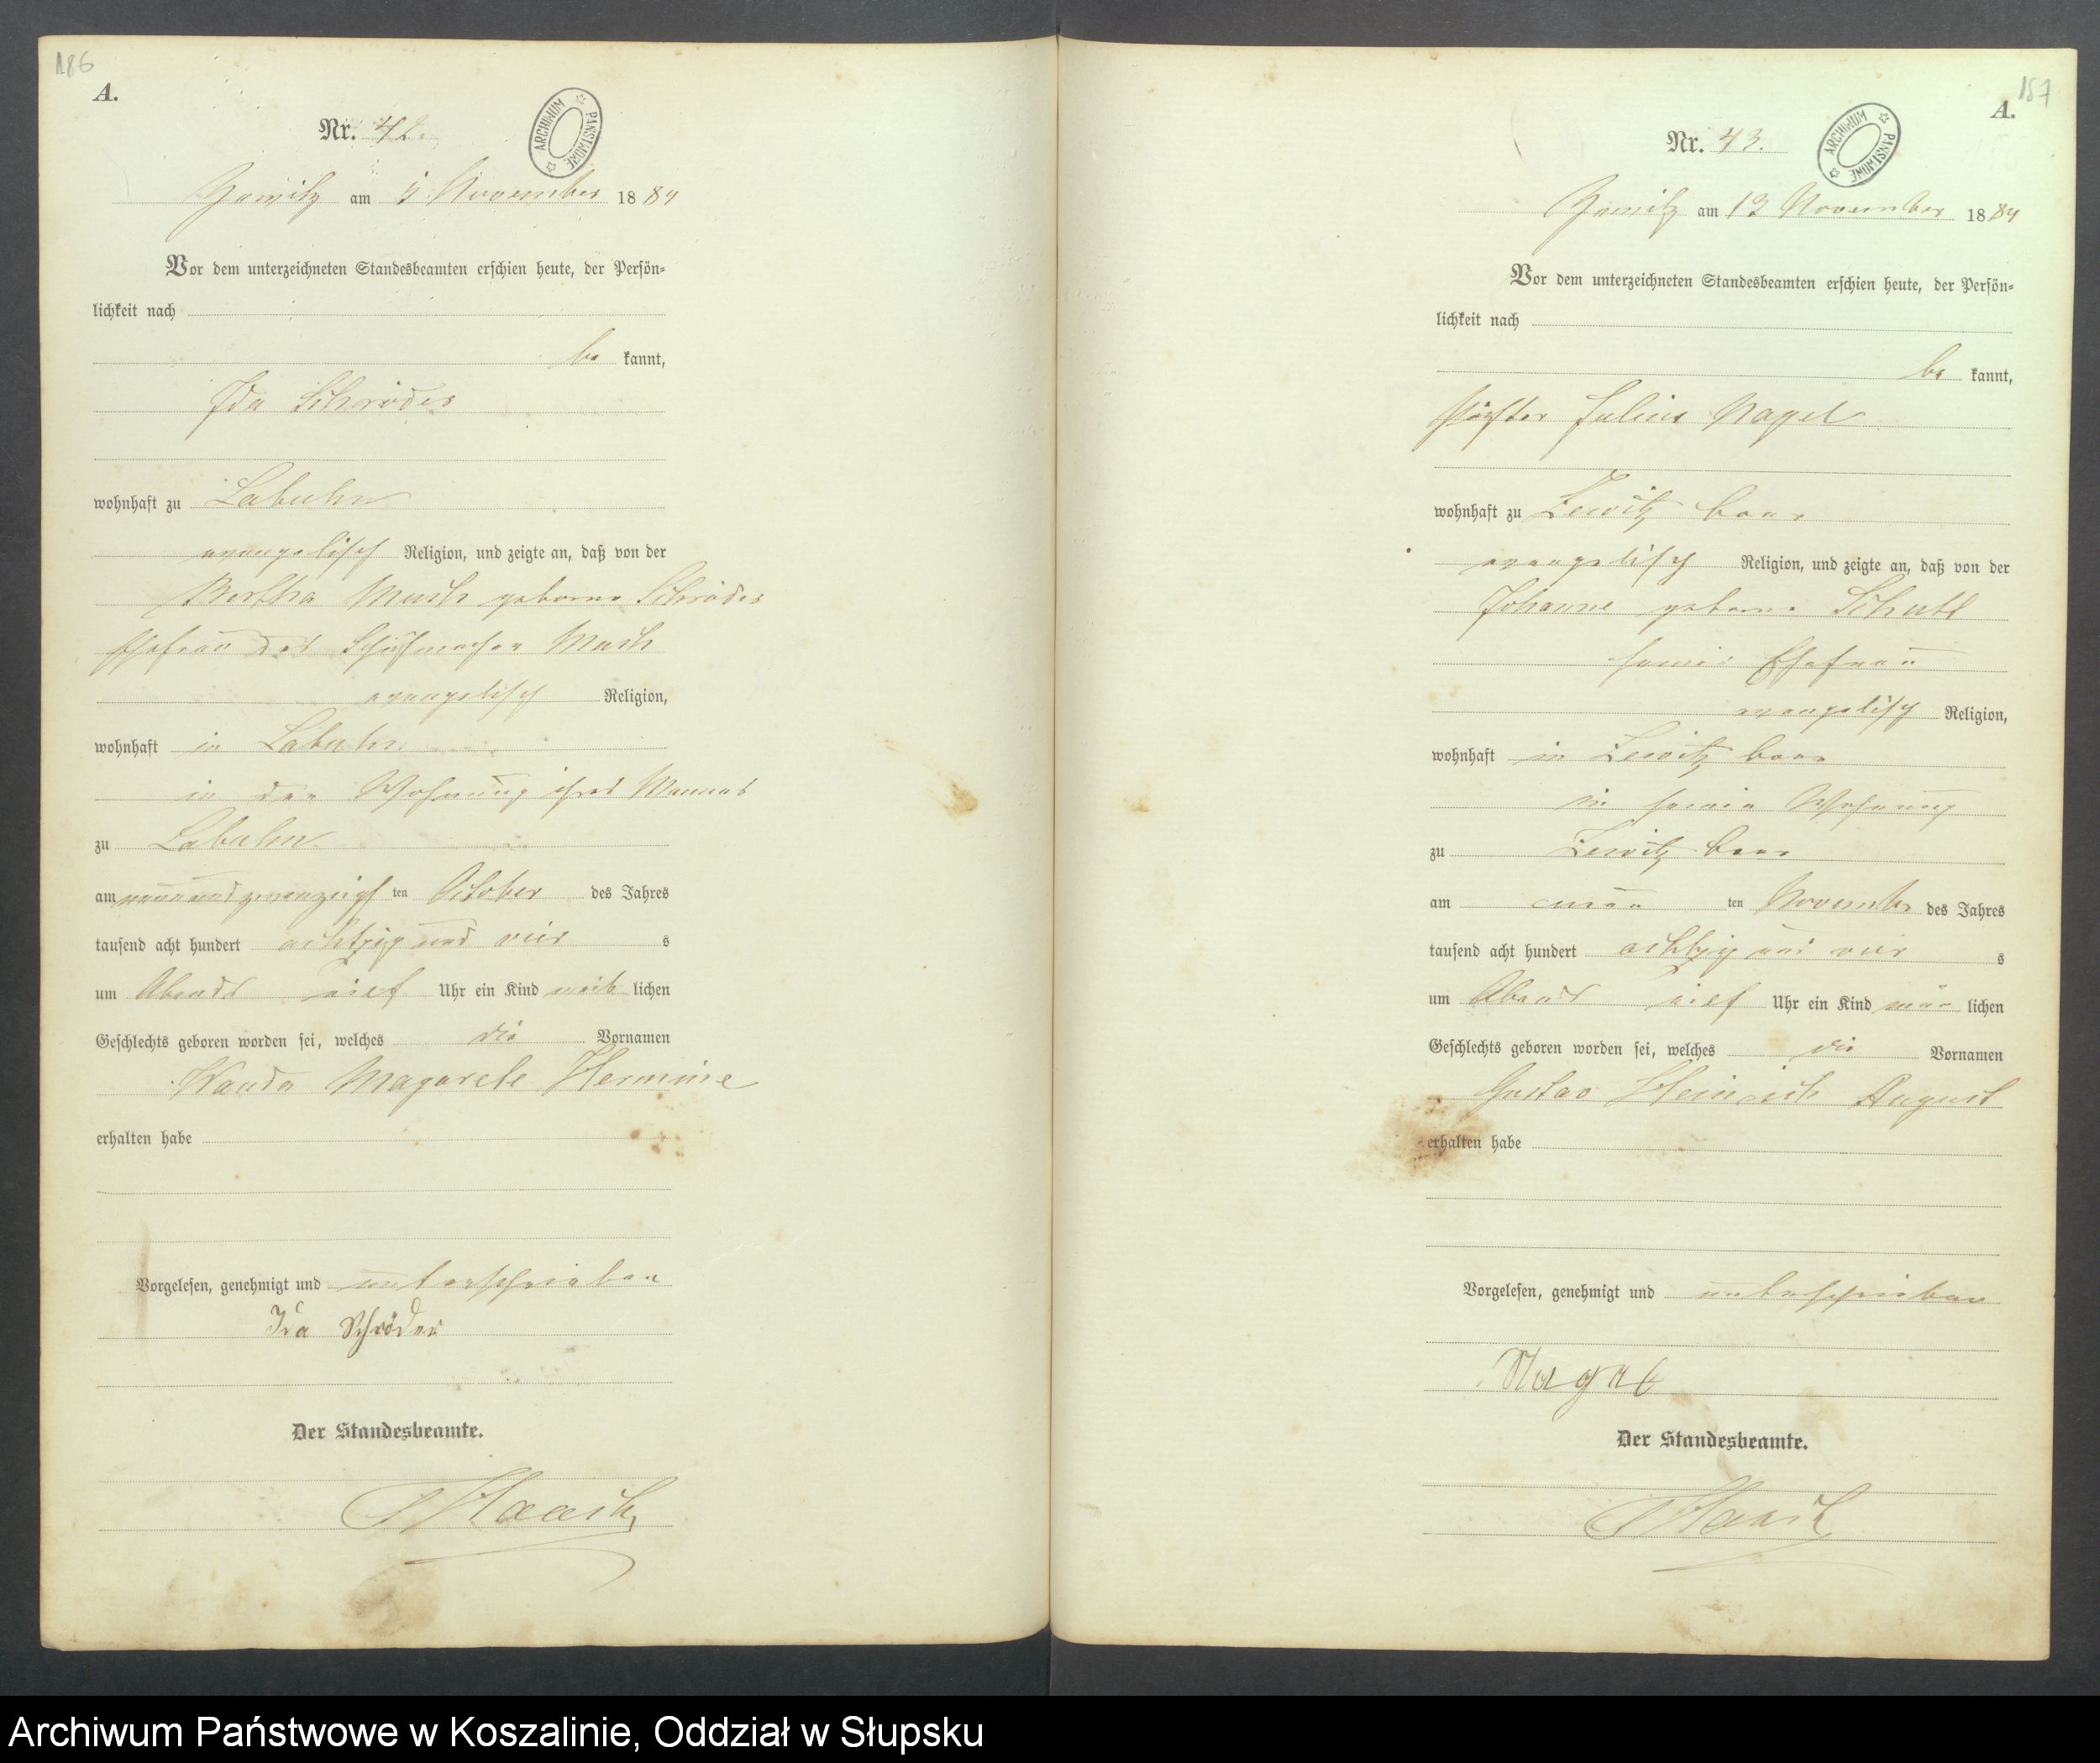 186
A.
Nr. 42.
ARCHIWUM PAŃSTWOWE
am 4 November 1884
Vor dem unterzeichneten Standesbeamten erschien heute, der Persön-
lichkeit nach
be kannt,
Ida Schröder
wohnhaft zu Labuhn
evangelisch Religion, und zeigte an, daß von der
Bertha Masch geborne Schröder
Ehefrau des Schuhmacher Masch
evangelisch Religion,
wohnhaft in Labuhn
in der Wohnung ihres Mannes
zu Labuhn
am neunundzwanzigsten October des Jahres
tausend acht hundert achtzig und vier s
um Abends elf Uhr ein Kind weib lichen
Geschlechts geboren worden sei, welches die Vornamen
Wanda Magarete Hermine
erhalten habe
Vorgelesen, genehmigt und unterschrieben
Ida Schröder
Der Standesbeamte.
187
A.
Nr. 43.
ARCHIWUM PAŃSTWOWE
am 13 November 1884
Vor dem unterzeichneten Standesbeamten erschien heute, der Persön-
lichkeit nach
be kannt,
Julius Nagel
wohnhaft zu
evangelisch Religion, und zeigte an, daß von der
Johanne geborne
seiner Ehefrau
evangelisch Religion,
wohnhaft in
in seiner Wohnung
zu
am ten November des Jahres
tausend acht hundert achtzig und vier s
um Abends elf Uhr ein Kind män lichen
Geschlechts geboren worden sei, welches die Vornamen
Gustav Heinrich August
erhalten habe
Vorgelesen, genehmigt und unterschrieben
Nagel
Der Standesbeamte.
Archiwum Państwowe w Koszalinie, Oddział w Słupsku